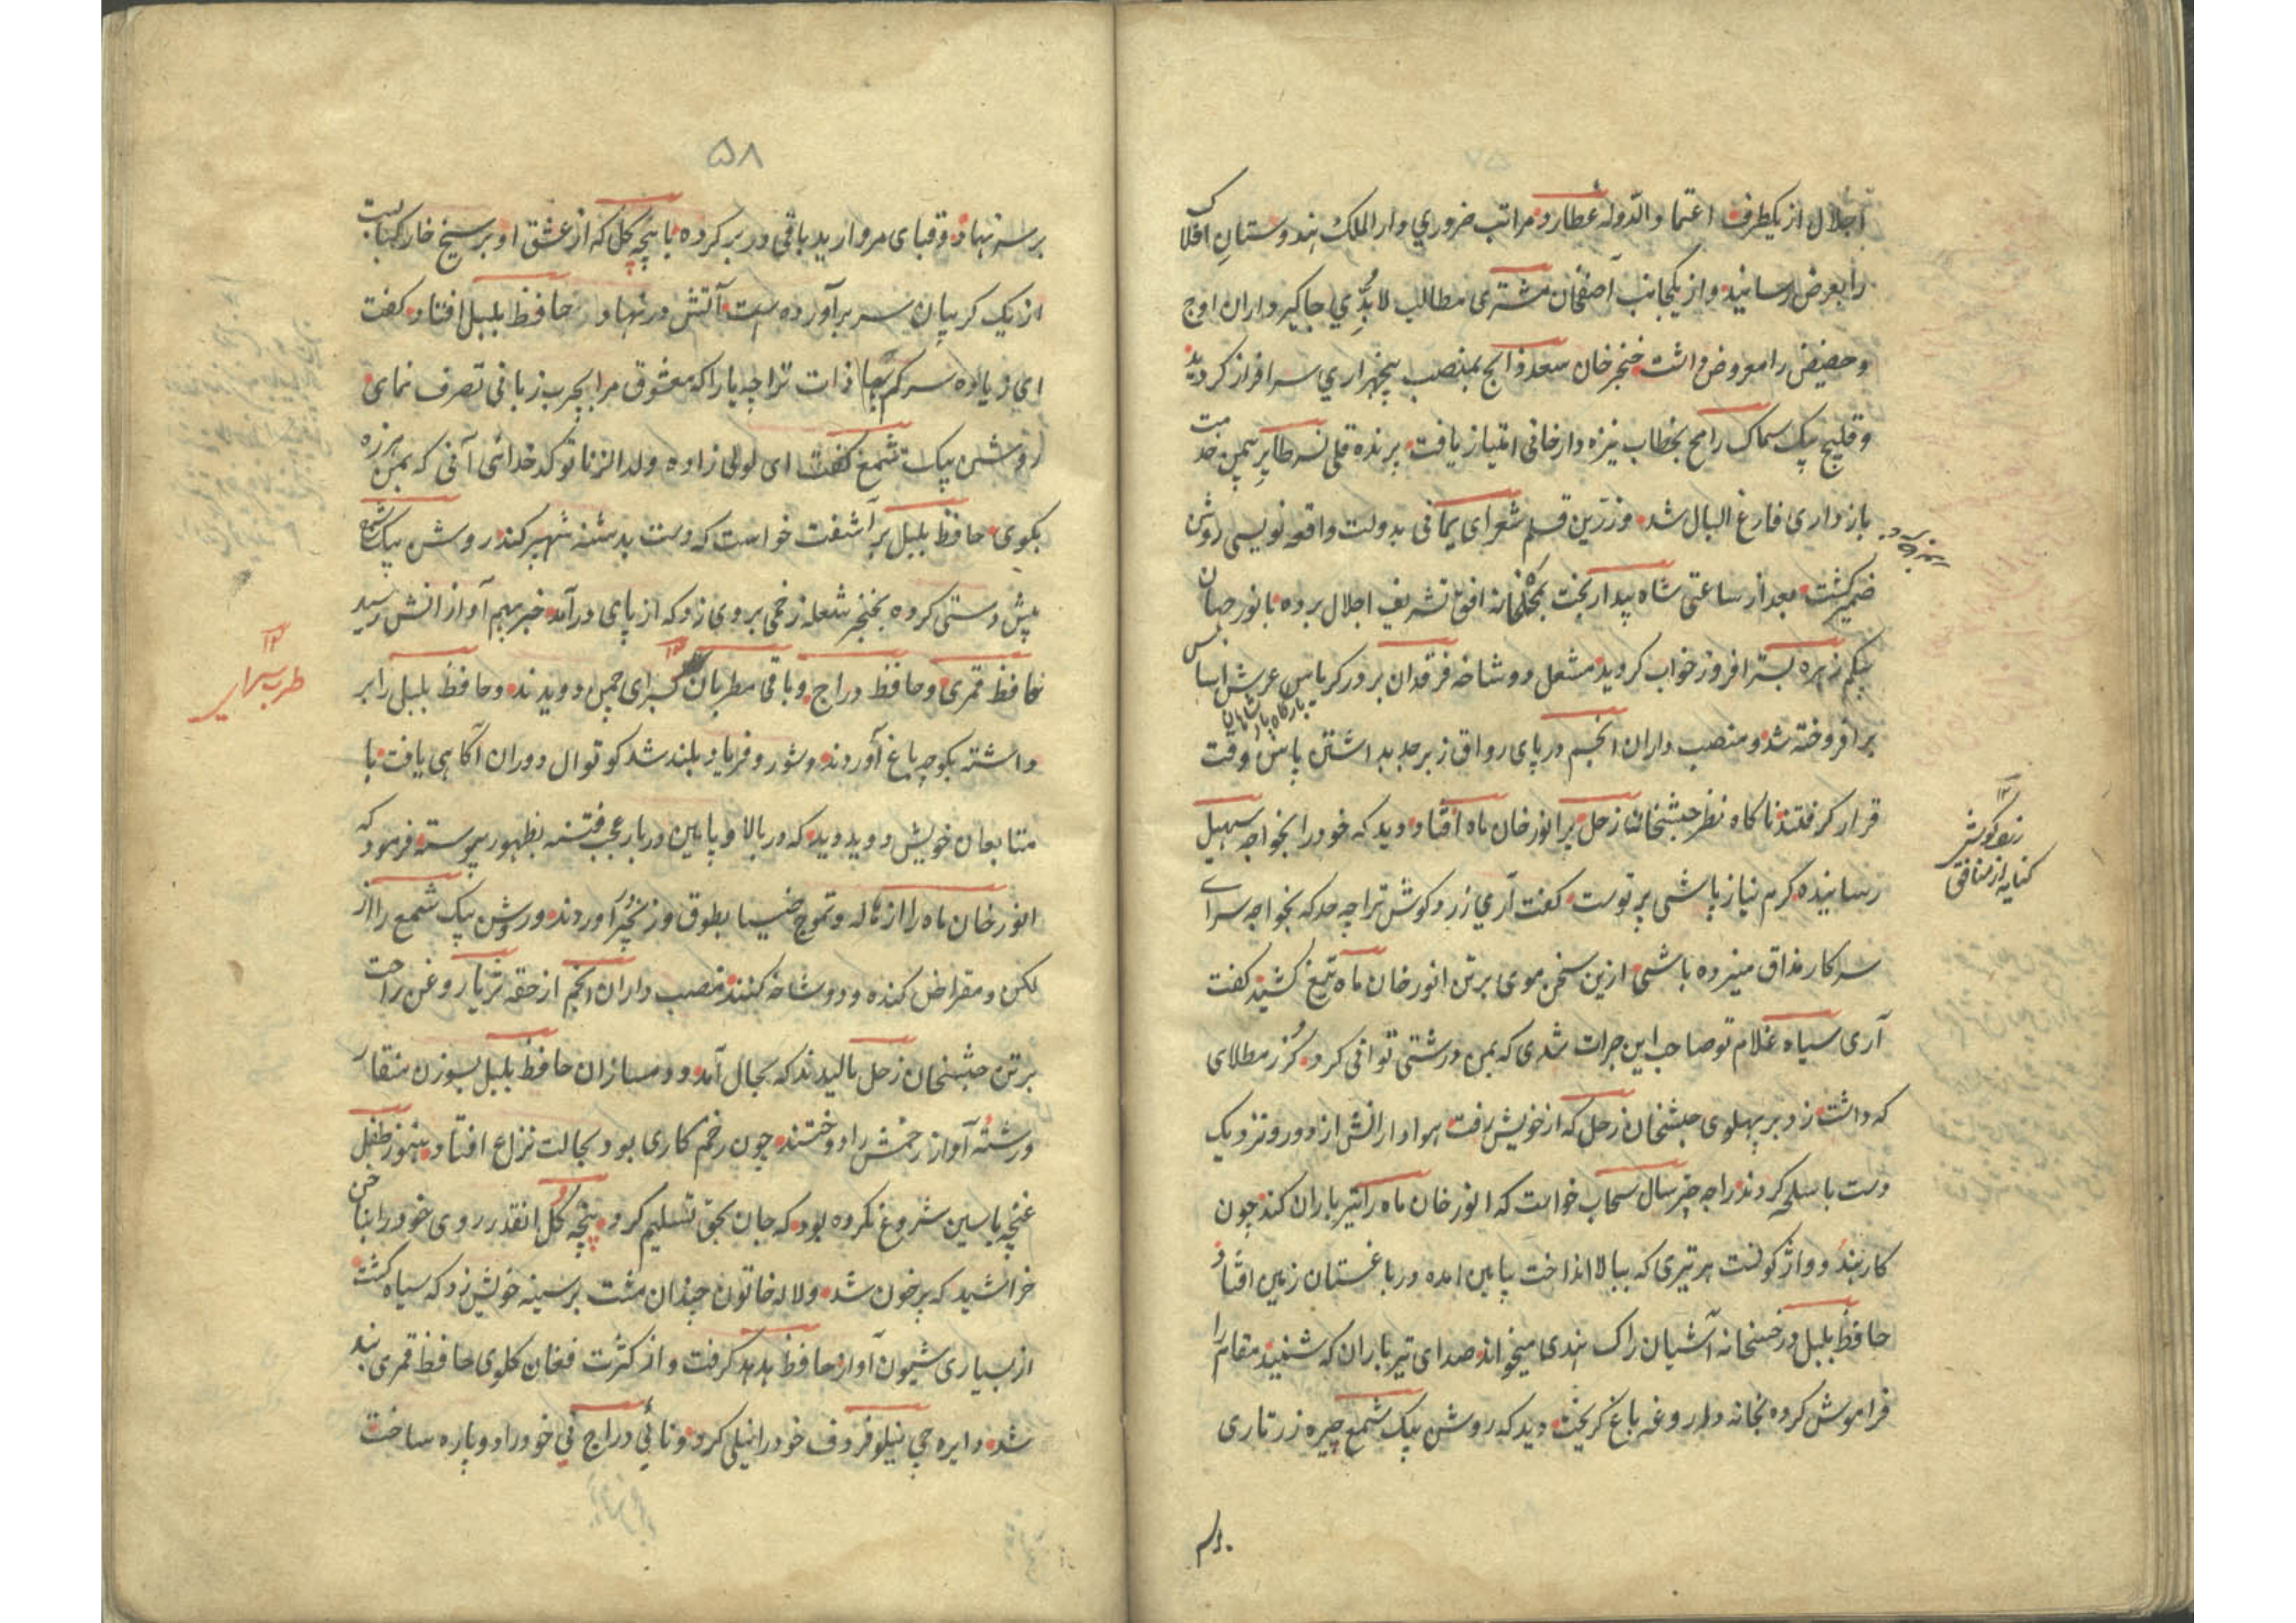 اجلال از یکطرف اعتماد الدوله عطارد مراتب ضروری دار الملک هندوستان افلاک
را بعرض رسانید و از یکجانب آصفخان مشتری مطالب لابدی جاگیرداران اوج
و حضیض را معروض داشت خنجر خان سعد ذابح بمنصب پنجهزاری سرافراز گردید
و قلیج بیک سماک رامح بخطاب نیزه دار خانی امتیاز یافت پرنده قلی نسر طایر بیمن خدمت
بازداری فارغ البال شد و زرین قلم شعرای یمانی بدولت واقعه نویسی روشن
ضمیر گشت بعد از ساعتی شاه بیدار بخت بمحلخانه افق تشریف اجلال برده با نور جهان
بیگم زهره بستر افروز خواب گردید مشعل دو شاخه فرقدان بر در کریاس عرش اساس
بارگاه پادشاهان
برافروخته شد و منصب داران انجم در پای رواق زبرجد بداشتن پاس وقت
قرار گرفتند ناگاه نظر حبشخان زحل بر انور خان ماه افتاد دید که خود را بخواجه سهیل
رسانیده گرم نیاز پاشی پرتوست گفت آری زرد گوش ترا چه حد که بخواجه سرای
سرکار مذاق میزده باشی ازین سخن موی بر تن انور خان ماه تیغ کشید گفت
آری سیاه غلام تو صاحب این جرات شدی که بمن درشتی توانی کرد گرز مطلای
که داشت زد بر پهلوی حبشخان زحل که از خویش رفت هوادارانش از دور و نزدیک
دست باسلحه کردند راجه چترسال سحاب خواست که انور خان ماه را تیر باران کند چون
کار بند و واژگونست هر تیری که ببالا انداخت پایین آمده در باغستان زمین افتاد
حافظ بلبل در خسخانه آشیان راگ هندی میخواند صدای تیر باران که شنید مقام را
فراموش کرده بخانه داروغه باغ گریخت دید که روشن بیک شمع چیره زرتاری
زرد گوش
کنایه از منافق
۵۸
بر سر نهاده و قبای مروارید بافی در بر کرده با بیچه گل که از عشق او بر سیخ خار کبابست
از یک گریبان سر برآورده است آتش در نهاد حافظ بلبل افتاد گفت
ای زیاده سر کم بها ذات ترا چه یارا که معشوق مرا بچرب زبانی تصرف نمای
روشن بیک شمع گفت ای لولی زاده ولد الزنا تو کدخدائی آنی که بمن هرزه
بگوی حافظ بلبل برآشفت خواست که دست بدشنه شهپر کند روشن بیک شمع
پیش دستی کرده بخنجر شعله زخمی بروی زد که از پای درآمد خبر بهم آوازانش رسید
حافظ قمری و حافظ دراج و باقی مطربان سرای چمن دویدند و حافظ بلبل را بر
داشته بکوچه باغ آوردند و شور و فریاد بلند شد کوتوال دوران آگاهی یافت با
متابعان خویش دوید دید که در بالا و پایین دربار عجب فتنه بظهور پیوسته فرمود که
انور خان ماه را از هاله و تموج ضیا بطوق و زنجیر آوردند و روشن بیک شمع را از
لگن و مقراض کنده و دو شاخه کنند منصب داران انجم از حقه ثریا روغن راحت
بر تن حبشخان زحل مالیدند که بحال آمد و دمسازان حافظ بلبل بسوزن منقار
و رشته آواز زخمش را دوختند چون زخم کاری بود بحالت نزاع افتاد هنوز طفل
غنچه یاسین شروع نکرده بود که جان بحق تسلیم کرد بیچه گل انقدر روی خود را بناخن
خراشید که پر خون شد و لاله خاتون چندان مشت بر سینه خویش زد که سیاه گشت
از بسیاری شیون آواز حافظ هدهد گرفت و از کثرت فغان گلوی حافظ قمری بند
شد دایره چی نیلوفر دف خود را نیلی کرد و نائی دراج نی خود را دوپاره ساخت
طرب سرای